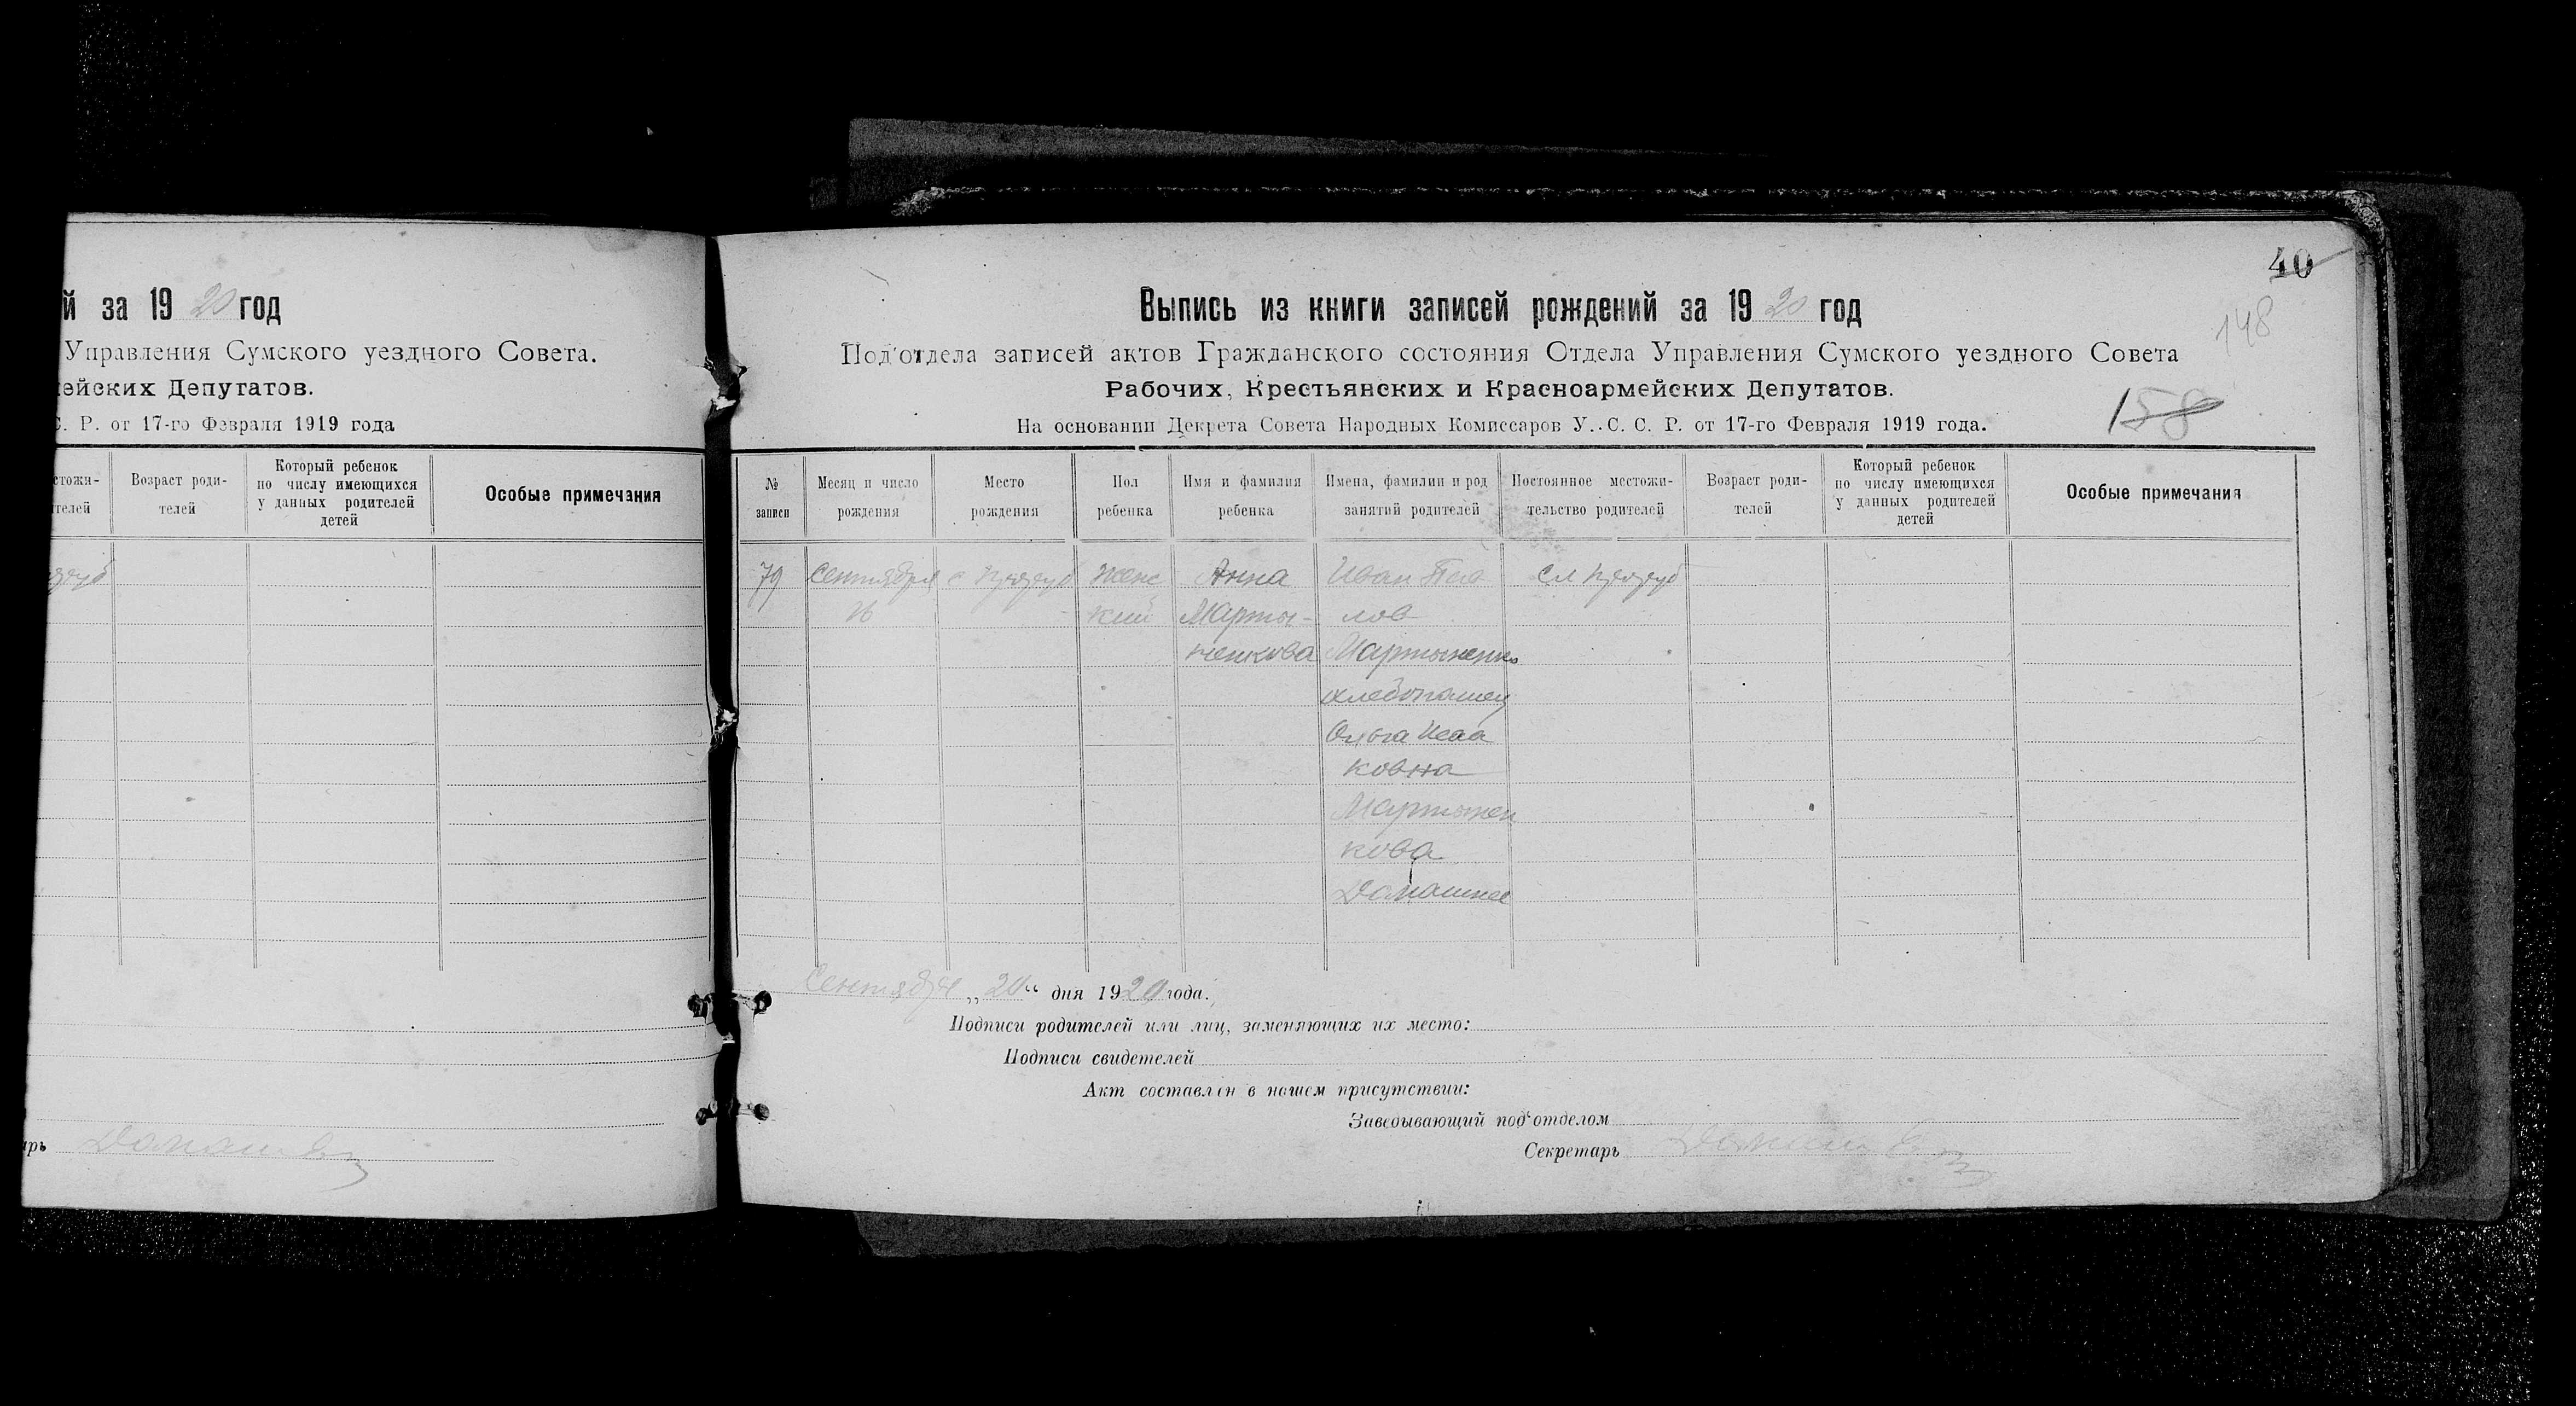 й за 1920 год
Управления Сумского уездного Совета.
ейских Депутатов.
С. Р. от 17-го Февраля 1919 года
стожи-
телей
Возраст роди-
телей
Который ребенок
по числу имеющихся
у данных родителей
детей
Особые примечания
арь
40
148
158
Выпись из книги записей рождений за 1920 год
Под'отдела записей актов Гражданского состояния Отдела Управления Сумского уездного Совета
Рабочих, Крестьянских и Красноармейских Депутатов.
На основании Декрета Совета Народных Комиссаров У. С. С. Р. от 17-го Февраля 1919 года.
№
записи
Месяц и число
рождения
Место
рождения
Пол
ребенка
Имя и фамилия
ребенка
Имена, фамилии и род
занятий родителей
Постоянное местожи-
тельство родителей
Возраст роди-
телей
Который ребенок
по числу имеющихся
у данных родителей
детей
Особые примечания
79
Сентября
16
с
женс
кий
Анна
Марты-
ненкова
Иван Пав
лов
Мартыненко
хлебопашец
Ольга Исаа
ковна
Мартынен
кова
Домашнее
сл
Сентября „20“ дня 1920 года.
Подписи родителей или лиц, заменяющих их место:
Подписи свидетелей
Акт составлен в нашем присутствии:
Заведывающий под'отделом
Секретарь